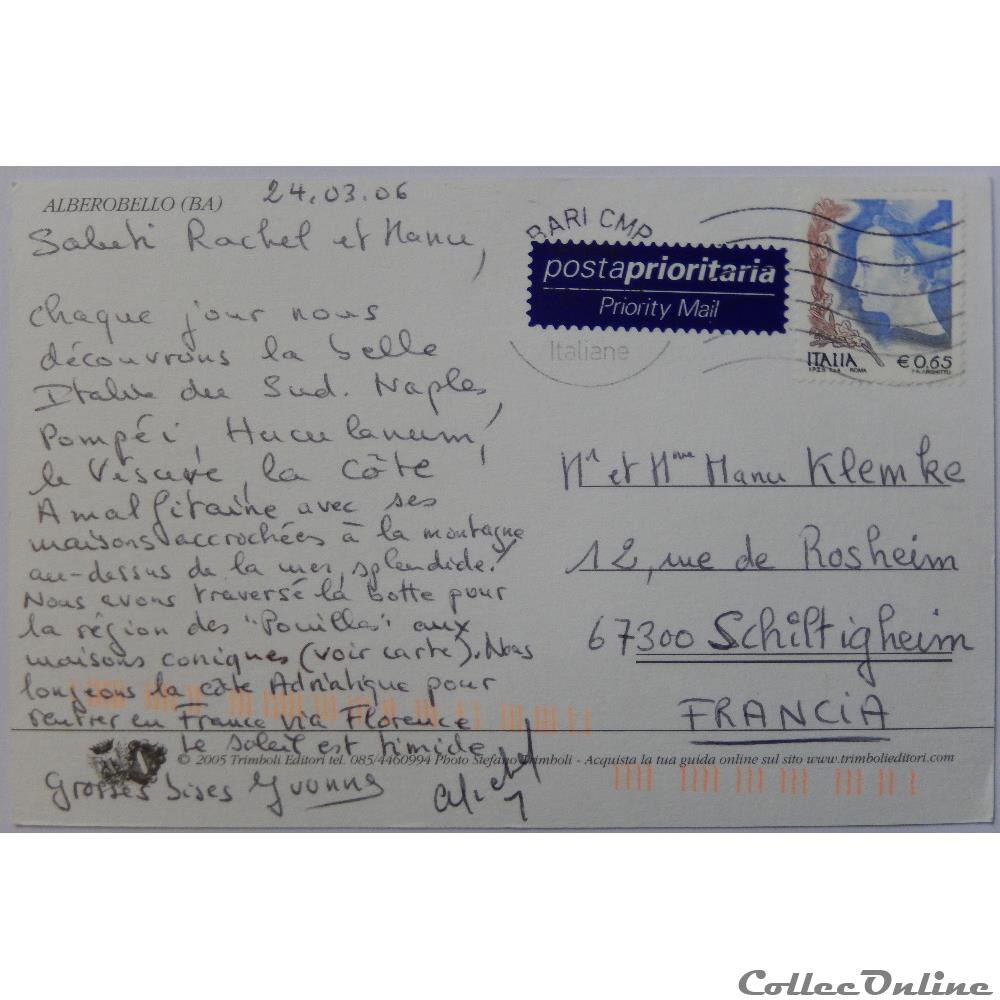 ALBEROBELLO (BA) 24.03.06
Saluti Rachel et Manu,
chaque jour nous
découvrons la belle
Italie du Sud. Naples,
Pompéi, Herculanum,
le Vésuve, la côte
Amalfitaine avec ses
maisons accrochées à la montagne
au-dessus de la mer, splendide!
Nous avons traversé la botte pour
la région des "Pouilles" aux
maisons coniques (voir carte). Nous
longeons la côte Adriatique pour
rentrer en France via Florence
Le soleil est timide
Grosses bises Yvonne
Michel
BARI CMP
postaprioritaria
Priority Mail
Italiane
ITALIA € 0,65
I.P.Z.S. S.p.A. ROMA
Mr et Mme Manu Klemke
12, rue de Rosheim
67300 Schiltigheim
FRANCIA
© 2005 Trimboli Editori tel. 085/4460994 Photo Stefano Trimboli - Acquista la tua guida online sul sito www.trimbolieditori.com
CollecOnline